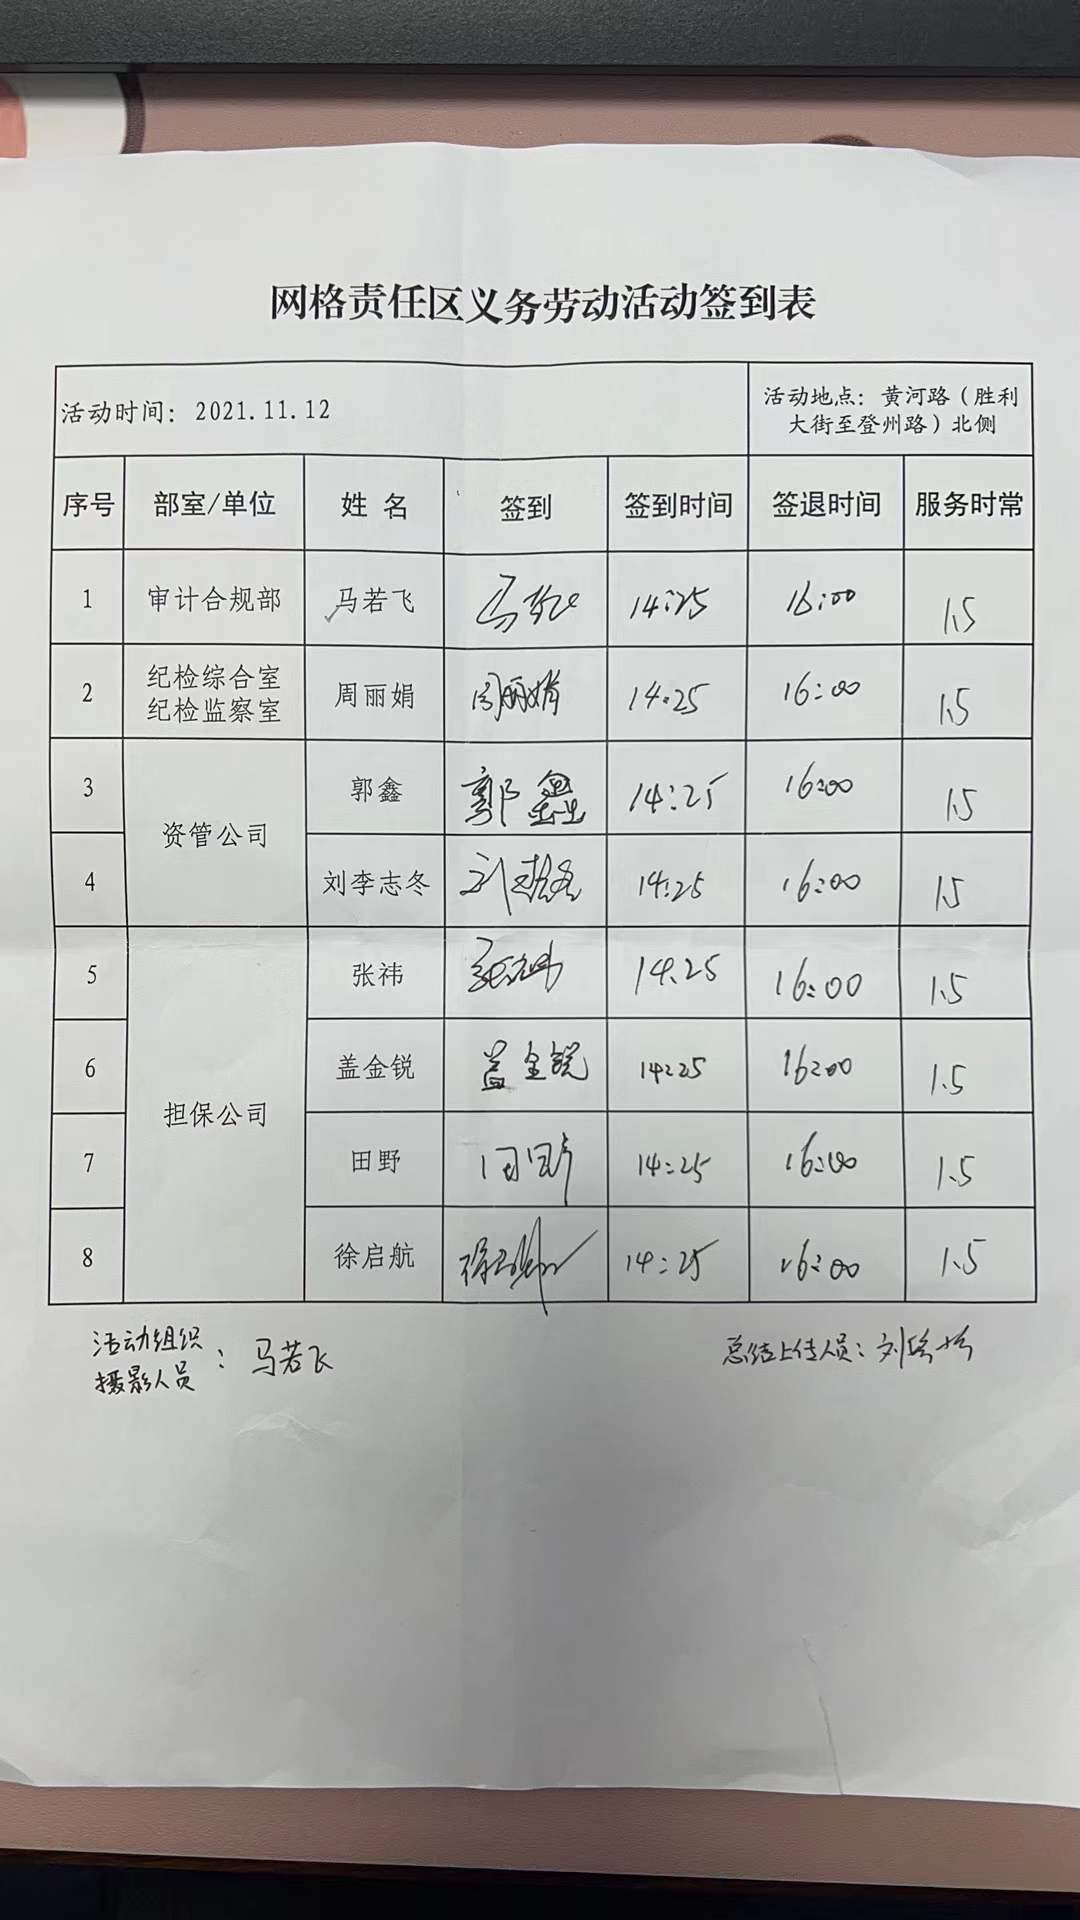 网格责任区义务劳动活动签到表
活动时间：2021.11.12
活动地点：黄河路（胜利
大街至登州路）北侧
序号 部室/单位 姓 名 签到 签到时间 签退时间 服务时常
1 审计合规部 马若飞 马若飞 14:25 16:00 1.5
2 纪检综合室
纪检监察室 周丽娟 周丽娟 14:25 16:00 1.5
3 资管公司 郭鑫 郭鑫 14:25 16:00 1.5
4 刘李志冬 14:25 16:00 1.5
5 担保公司 张祎 张祎 14:25 16:00 1.5
6 盖金锐 盖金锐 14:25 16:00 1.5
7 田野 田野 14:25 16:00 1.5
8 徐启航 徐启航 14:25 16:00 1.5
活动组织
摄影人员：马若飞
总结上传人员：刘